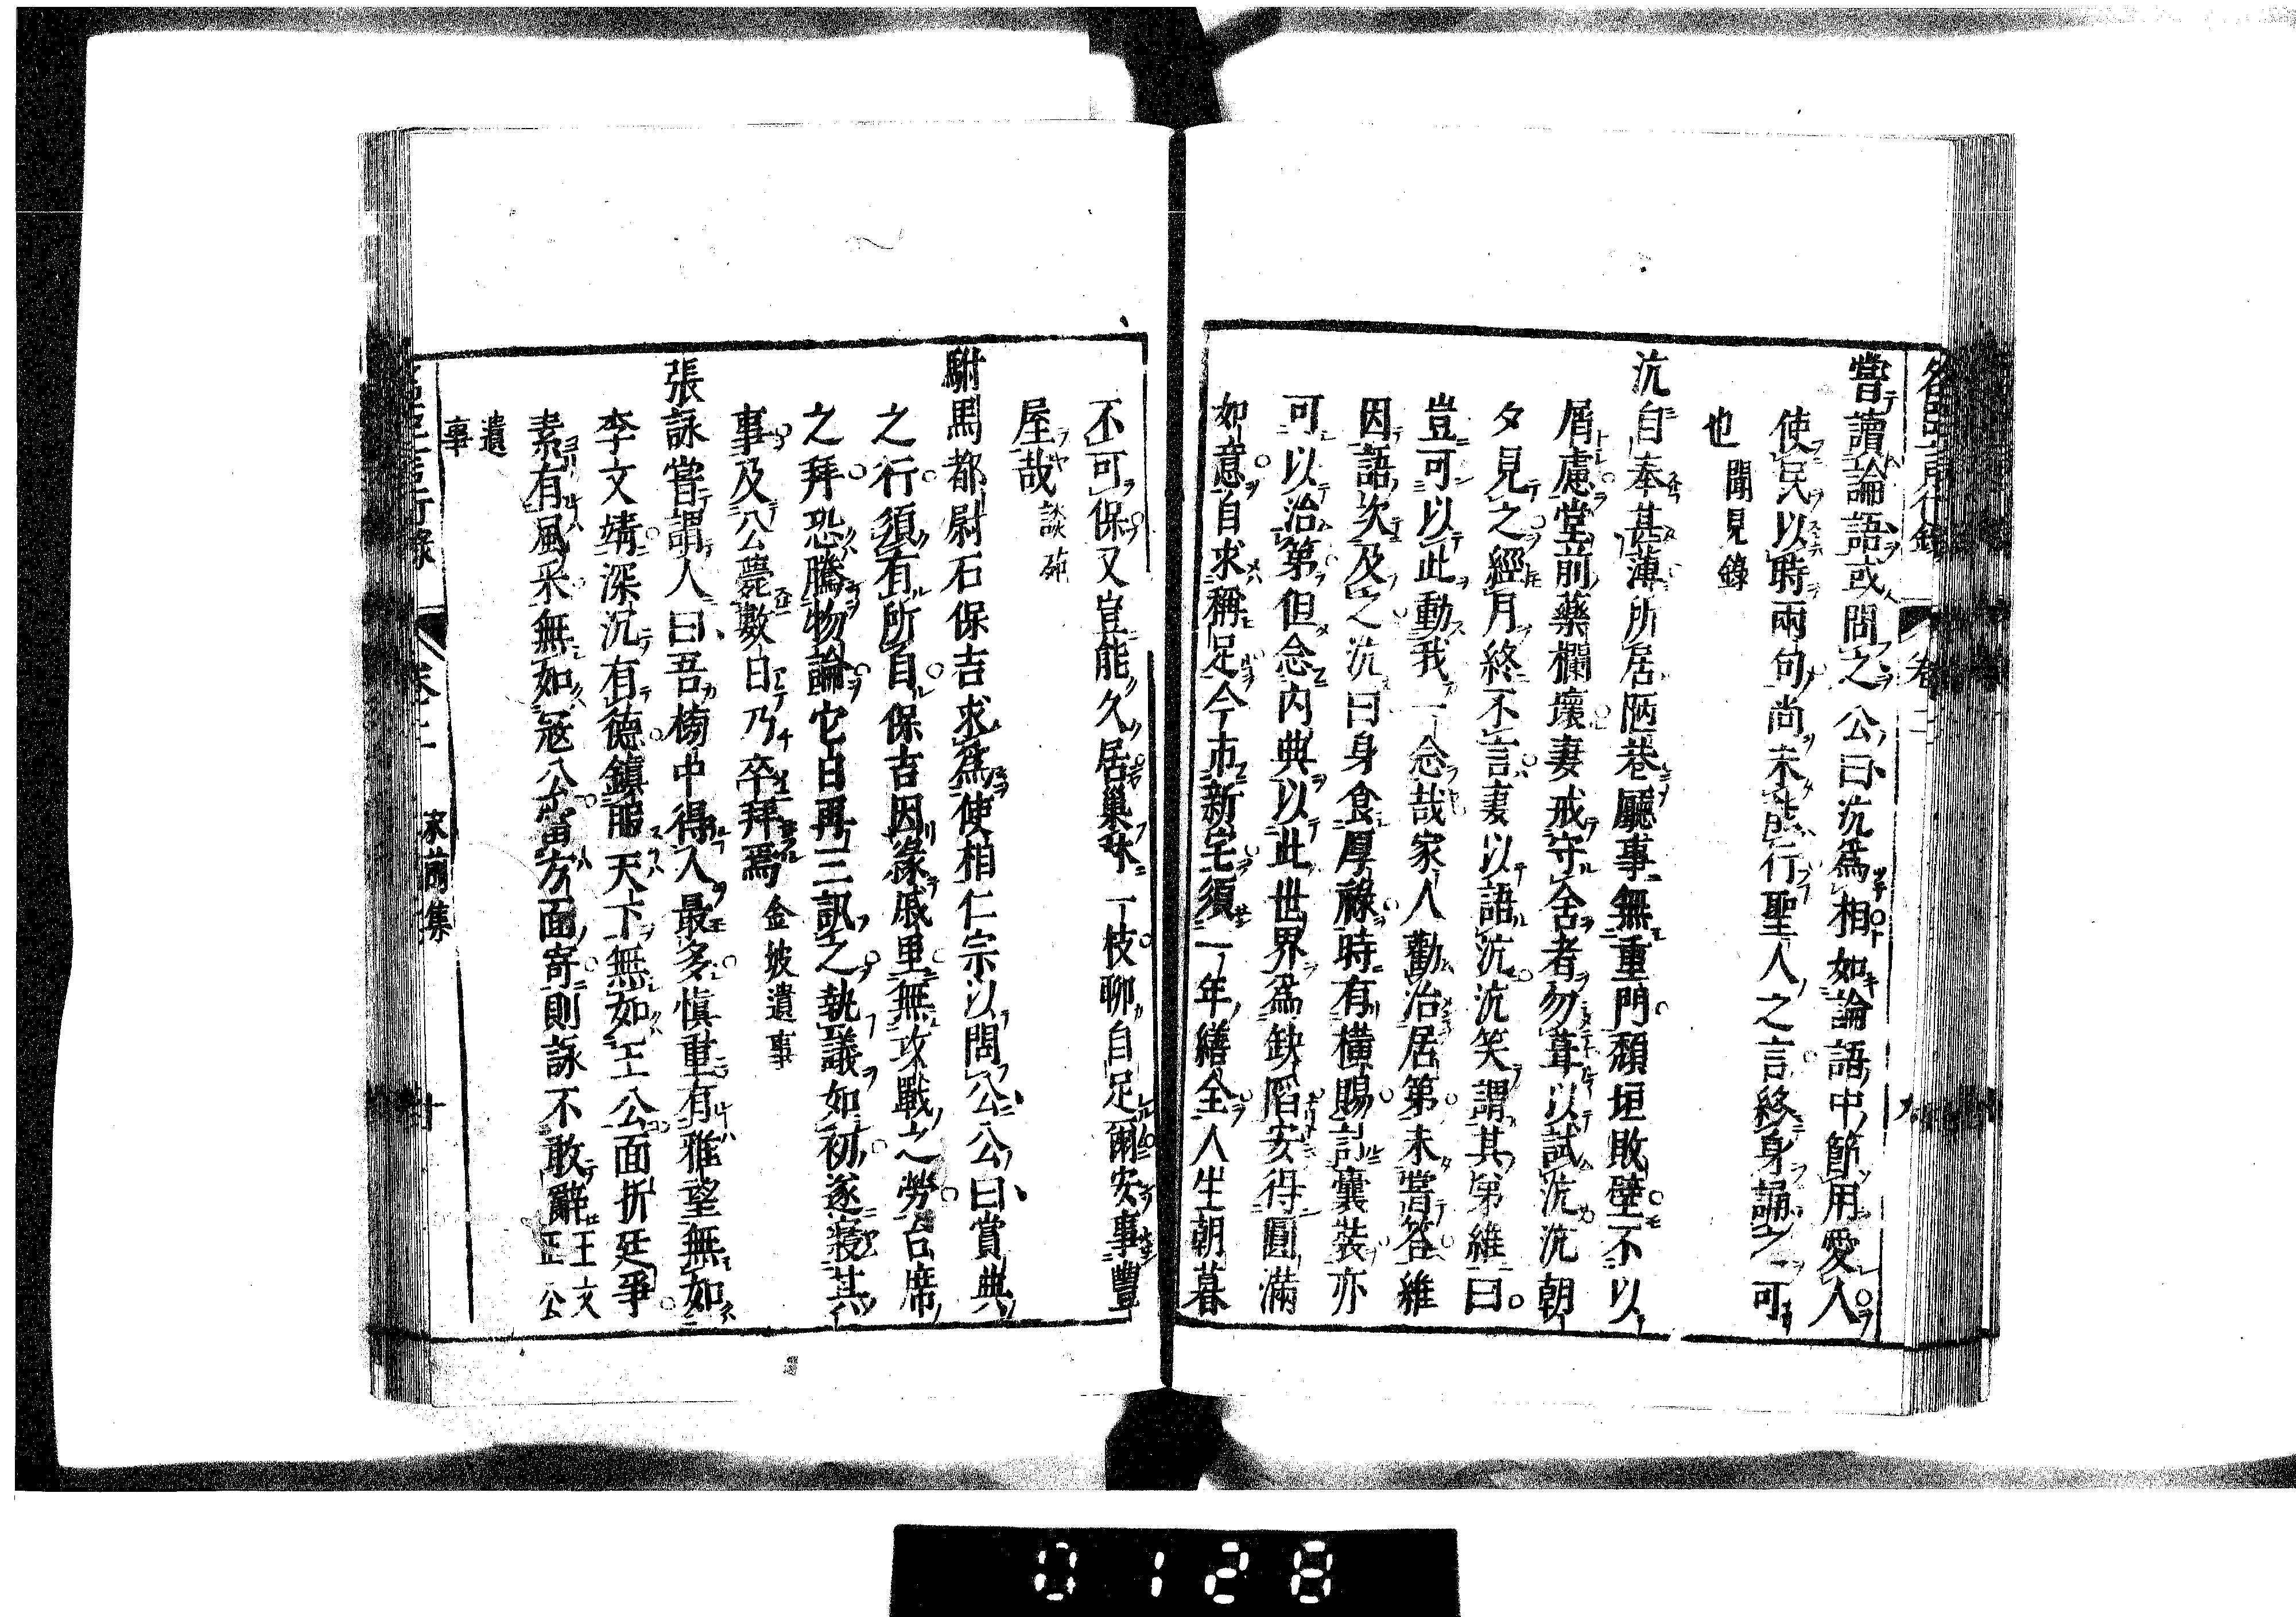 嘗讀論語或問之公曰沆爲相如論語中節用愛人
使民以時兩句尚未能行聖人之言終身誦之可
也 聞見錄
沆自奉甚薄所居陋巷廳事無重門頽垣敗壁不以
屑慮堂前藥欄壞妻戒守舍者勿葺以試沆沆朝
夕見之經月終不言妻以語沆沆笑謂其弟維曰
豈可以此動我一念哉家人勸治居第未嘗答維
因語次及之沆曰身食厚祿時有橫賜計囊裝亦
可以治第但念內典以此世界爲缺陷安得圓滿
如意自求稱足今市新宅須一年繕全人生朝暮
不可保又豈能久居巢林一枝聊自足爾安事豐
屋哉 談苑
駙馬都尉石保吉求爲使相仁宗以問公公曰賞典
之行須有所自保吉因緣戚里無攻戰之勞台席
之拜恐騰物論它日再三訊之執議如初遂寢其
事及公薨數日乃卒拜焉 金坡遺事
張詠嘗謂人曰吾榜中得人最多愼重有雅望無如
李文靖深沉有德鎭服天下無如王公面折廷爭
素有風采無如寇公當方面寄則詠不敢辭 王文正公
遺事
卷二